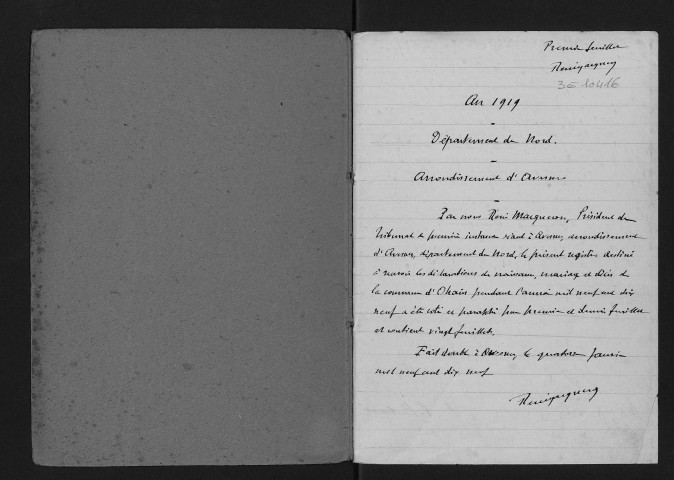 Premier feuillet
3E 10416
An 1919
Département du Nord.
Arrondissement d'Avesnes
Par nous René Macqueron, Président du
Tribunal de première instance séant à Avesnes, arrondissement
d'Avesnes, département du Nord, le présent registre destiné
à recevoir les déclarations de naissance, mariage et décès de
la commune d'Ohain pendant l'année mil neuf cent dix
neuf a été coté et paraphé par premier et dernier feuillet
et contient vingt feuillets.
Fait double à Avesnes, le quatorze
mil neuf cent dix neuf